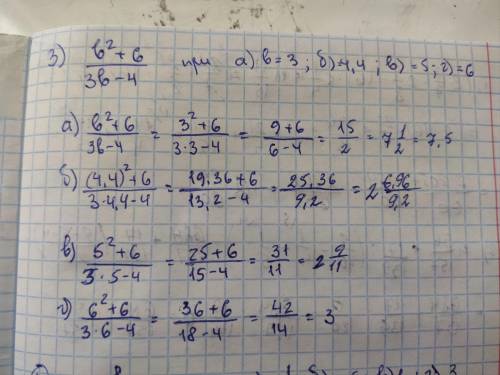 3) (b²+6)/(3b−4) при а) b=3; б) 4,4; в) =5; г) =6
а) (b²+6)/(3b−4) = (3²+6)/(3·3−4) = (9+6)/(6−4) = 15/2 = 7 1/2 = 7,5
б) ((4,4)²+6)/(3·4,4−4) = (19,36+6)/(13,2−4) = 25,36/9,2 = 2 6,96/9,2
в) (5²+6)/(3·5−4) = (25+6)/(15−4) = 31/11 = 2 9/11
г) (6²+6)/(3·6−4) = (36+6)/(18−4) = 42/14 = 3